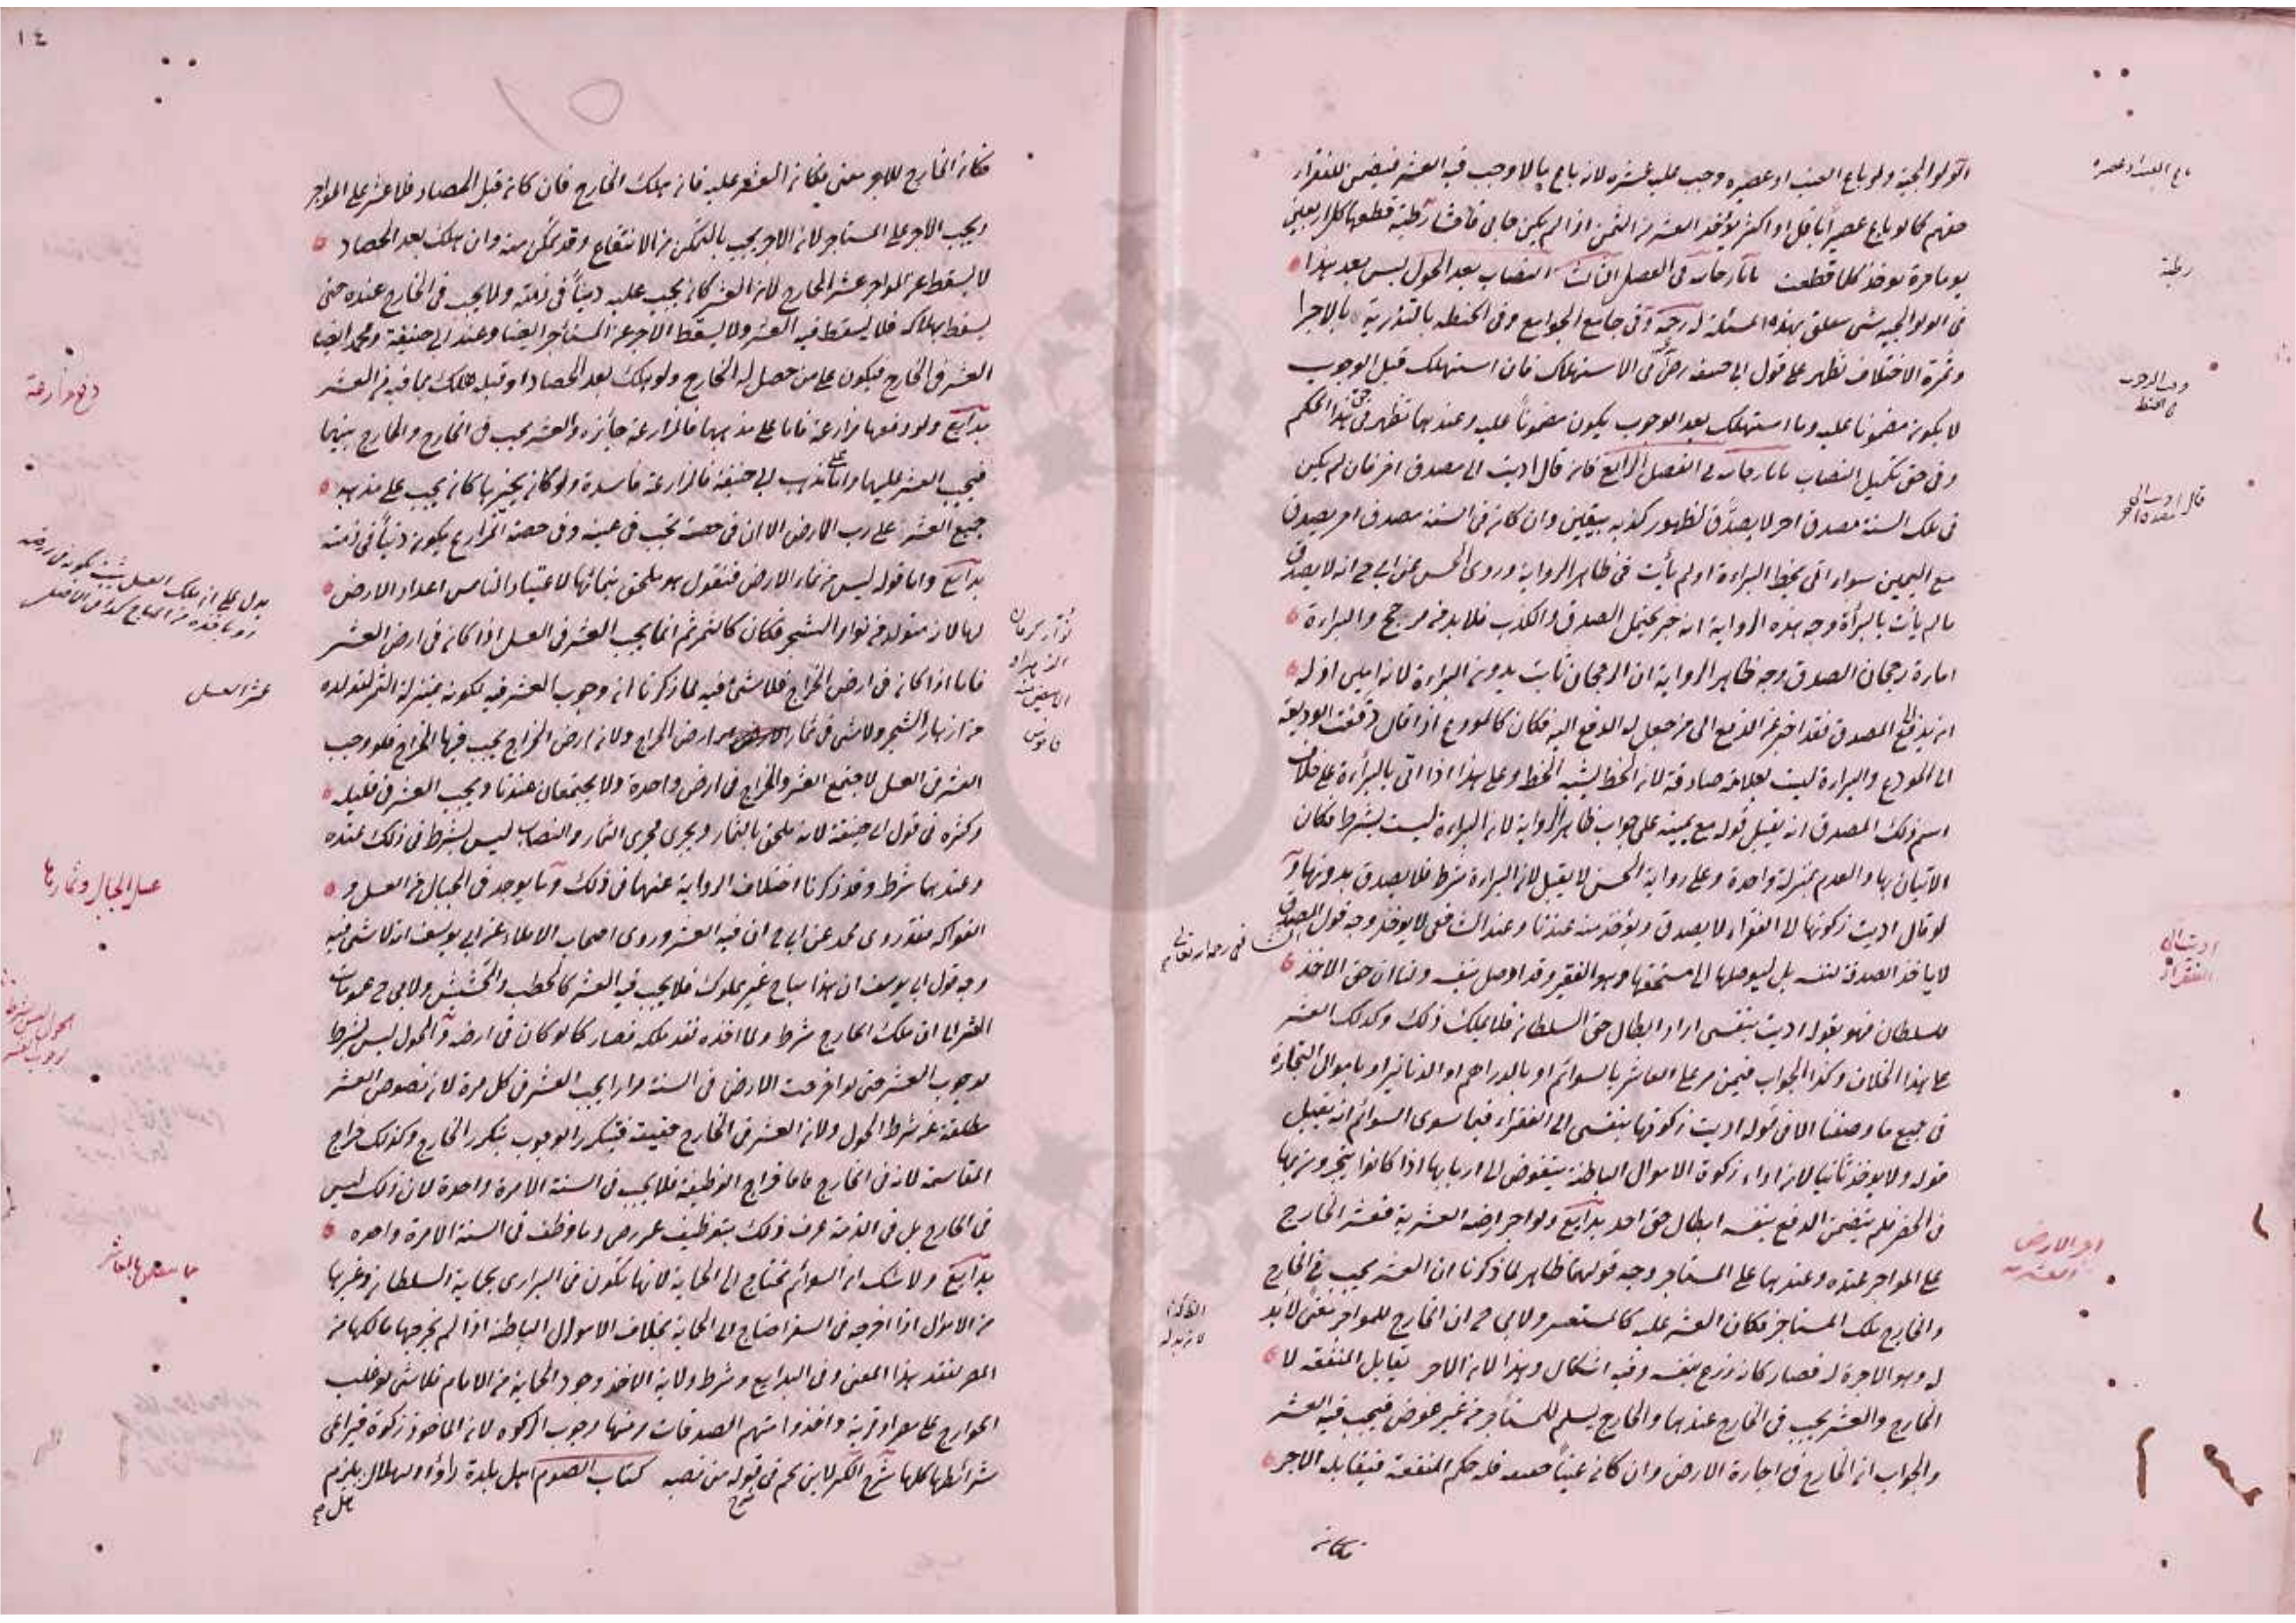 الولوالجية ولو باع العنب او عصيره وجب عليه عشره لانه باع مالا وجب فيه العشر فيضمن للفقراء
حقهم كما لو باع عصيرا ما قل او اكثر يؤخذ العشر من الثمن اذا لم يكن حابى رطبة قطعها كل اربعين
يوما مرة يوخذ كلما قطعت تاتارخانيه فى الفصل الثالث النصاب بعد الحول ليس بعد هذا
فى الولوالجيه شى متعلق بهذه المسئلة وفى جامع الجوامع وفى الحنطه بالتذرية
وثمرة الاختلاف تظهر على قول ابى حنيفه رض فى الاستهلاك فان استهلك قبل الوجوب
لا يكون مضمونا عليه وما استهلك بعد الوجوب يكون مضمونا عليه وعندهما تظهر فى حق هذا الحكم
وفى حق تكميل النصاب تاتارخانيه فى الفصل الرابع فان قال اديت الى مصدق اخر فان لم يكن
فى تلك السنة مصدق اخر لا يصدق لظهور كذبه بيقين وان كان فى السنة مصدق اخر يصدق
مع اليمين سواء اتى بخط البراءة او لم يأت فى ظاهر الرواية وروى الحسن عن ابى ح انه لا يصدق
ما لم يأت بالبرأة وجه هذه الرواية انه خبر يحتمل الصدق والكذب فلا بد من مرجح والبراءة
امارة رجحان الصدق وجه ظاهر الرواية ان الرجحان ثابت بدون البراءة لانه امين اذ له
ان يدفع الى المصدق فقد اخبر عن الدفع الى من جعل له الدفع اليه فكان كالمودع اذا قال دفعت الوديعة
الى المودع والبراءة ليست بعلامة صادقة لان الخط يشبه الخط وعلى هذا اذا اتى بالبرأة على خلاف
اسم ذلك المصدق انه يقبل قوله مع يمينه على جواب ظاهر الرواية لان البراءة ليست بشرط فكان
الاتيان بها والعدم بمنزلة واحدة وعلى رواية الحسن لا يقبل لان البراءة شرط فلا يصدق بدونها
لو قال اديت زكوتها الى الفقراء لا يصدق ويؤخذ منه عندنا وعند الشافعى لا يوخذ وجه قول
لا ياخذ الصدقة لنفسه بل ليوصلها الى مستحقها وهو الفقير وقد اوصل بنفسه ولنا ان حق الاخذ
للسلطان فهو بقوله اديت بنفسى اراد ابطال حق السلطان فلا يملك ذلك وكذلك العشر
على هذا الخلاف وكذا الجواب فيمن مر على العاشر بالسوائم او بالدراهم او الدنانير او باموال التجارة
فى جميع ما وصفنا الا فى قوله اديت زكوتها بنفسى الى الفقراء فيما سوى السوائم انه يقبل
قوله ولا يوخذ ثانيا لان اداء زكوة الاموال الباطنة مفوض الى اربابها اذا كانوا يتجرون بها
فى المصر فلم يتضمن الدفع بنفسه ابطال حق احد بدايع ولو اجر ارضه العشرية فعشر الخارج
على المواجر عنده وعندهما على المستاجر وجه قولهما ظاهر لما ذكرنا ان العشر يجب فى الخارج
والخارج ملك المستاجر فكان العشر عليه كالمستعير ولابى ح ان الخارج للمواجر معنى لان
له وهو الاجرة له فصار كانه زرع بنفسه وفيه اشكال وهذا لان الاجر يقابل المنفعة لا
الخارج والعشر يجب فى الخارج عندهما والخارج يسلم للمستاجر من غير عوض فيجب فيه العشر
والجواب ان الخارج فى اجارة الارض وان كان عينا حقيقه فله حكم المنفعة فيقابله الاجر
فكان
باع العنب او عصيره
رطبة
وقت الوجوب
فى الحنطة
اديت الى
الفقراء
اجر الارض
العشريه
فكان الخارج للاجر معنى فكان العشر عليه فان هلك الخارج فان كان قبل الحصاد فلا عشر على المواجر
ويجب الاجر على المستاجر لان الاجر يجب بالتمكن من الانتفاع وقد تمكن منه وان هلك بعد الحصاد
لا يسقط عن المواجر عشر الخارج لان العشر كان يجب عليه دينا فى ذمته ولا يجب فى الخارج عنده حتى
يسقط بهلاكه فلا يسقط فيه العشر ولا يسقط الاجر عن المستأجر ايضا وعند ابى حنيفة ومحمد ايضا
العشر فى الخارج فيكون على من حصل له الخارج ولو هلك بعد الحصاد او قبله هلك بما فيه من العشر
بدايع ولو دفعها مزارعة فاما على مذهبهما فالمزارعة جائزه والعشر يجب فى الخارج والخارج بينهما
فيجب العشر عليهما واما على مذهب ابى حنيفة فالمزارعة فاسدة ولو كان يجيزها كان يجب على مذهبه
جميع العشر على رب الارض الا ان فى حصته يجب فى عينه وفى حصة المزارع يكون دينا فى ذمته
بدايع واما قوله ليس من نماء الارض فنقول هو ملحق بنمائها لاعتياد الناس اعداد الارض
لها لانه متولد من نوار الشجر فكان كالثمر ثم انما يجب العشر فى العسل اذا كان فى ارض العشر
فاما اذا كان فى ارض الخراج فلا شئ فيه لما ذكرنا ان وجوب العشر فيه لكونه بمنزلة الثمر لتولده
من ازهار الشجر ولا شى فى ثمار ارض الخراج ولان ارض الخراج يجب فيها الخراج فلو وجب
العشر فى العسل لاجتمع العشر والخراج فى ارض واحدة ولا يجتمعان عندنا ويجب العشر فى قليله
وكثره فى قول ابى حنيفة لانه ملحق بالثمار ويجرى مجرى الثمار والنصاب ليس بشرط فى ذلك عنده
وعندهما شرط وقد ذكرنا اختلاف الرواية عنهما فى ذلك وما يوجد فى الجبال من العسل و
الفواكه فقد روى محمد عن ابى ح ان فيه العشر وروى اصحاب الاملاء عن ابى يوسف انه لا شى فيه
وجه قول ابى يوسف ان هذا مباح غير مملوك فلا يجب فيه العشر كالحطب والحشيش ولابى ح عمومات
العشر الا ان ملك الخارج شرط ولما اخذه فقد ملكه فصار كما لو كان فى ارضه والحول ليس بشرط
لوجوب العشر حتى لو اخرجت الارض فى السنة مرارا يجب العشر فى كل مرة لان نصوص العشر
مطلقة عن شرط الحول ولان العشر فى الخارج حقيقة فيتكرر الوجوب بتكرر الخارج وكذلك خراج
المقاسمة لانه فى الخارج فاما خراج الوظيفة فلا يجب فى السنة الا مرة واحدة لان ذلك ليس
فى الخارج بل فى الذمة عرف ذلك بتوظيف عمر رض وما وظف فى السنة الا مرة واحده
بدايع ولا شك ان السوائم تحتاج الى الحماية لانها تكون فى البرارى بحماية السلطان وغيرها
من الاموال اذا اخرجه فى السفر احتاج الى الحماية بخلاف الاموال الباطنة اذا لم يخرجها مالكها من
المصر لفقد هذا المعنى وفى البدايع وشرط ولاية الاخذ وجود الحماية من الامام فلا شى لو غلب
الخوارج على مصر او قرية واخذوا منهم الصدقات ومنها وجوب الزكوه لان الماخوذ زكوة فيراعى
شرائطها كلها شرح الكنز لابن نجيم فى قوله من نصبه كتاب الصوم اهل بلدة راوا الهلال يلزم
عشر العسل
عسل الجبال وثمارها
الحول ليس بشرط
لوجوب العشر
١٤